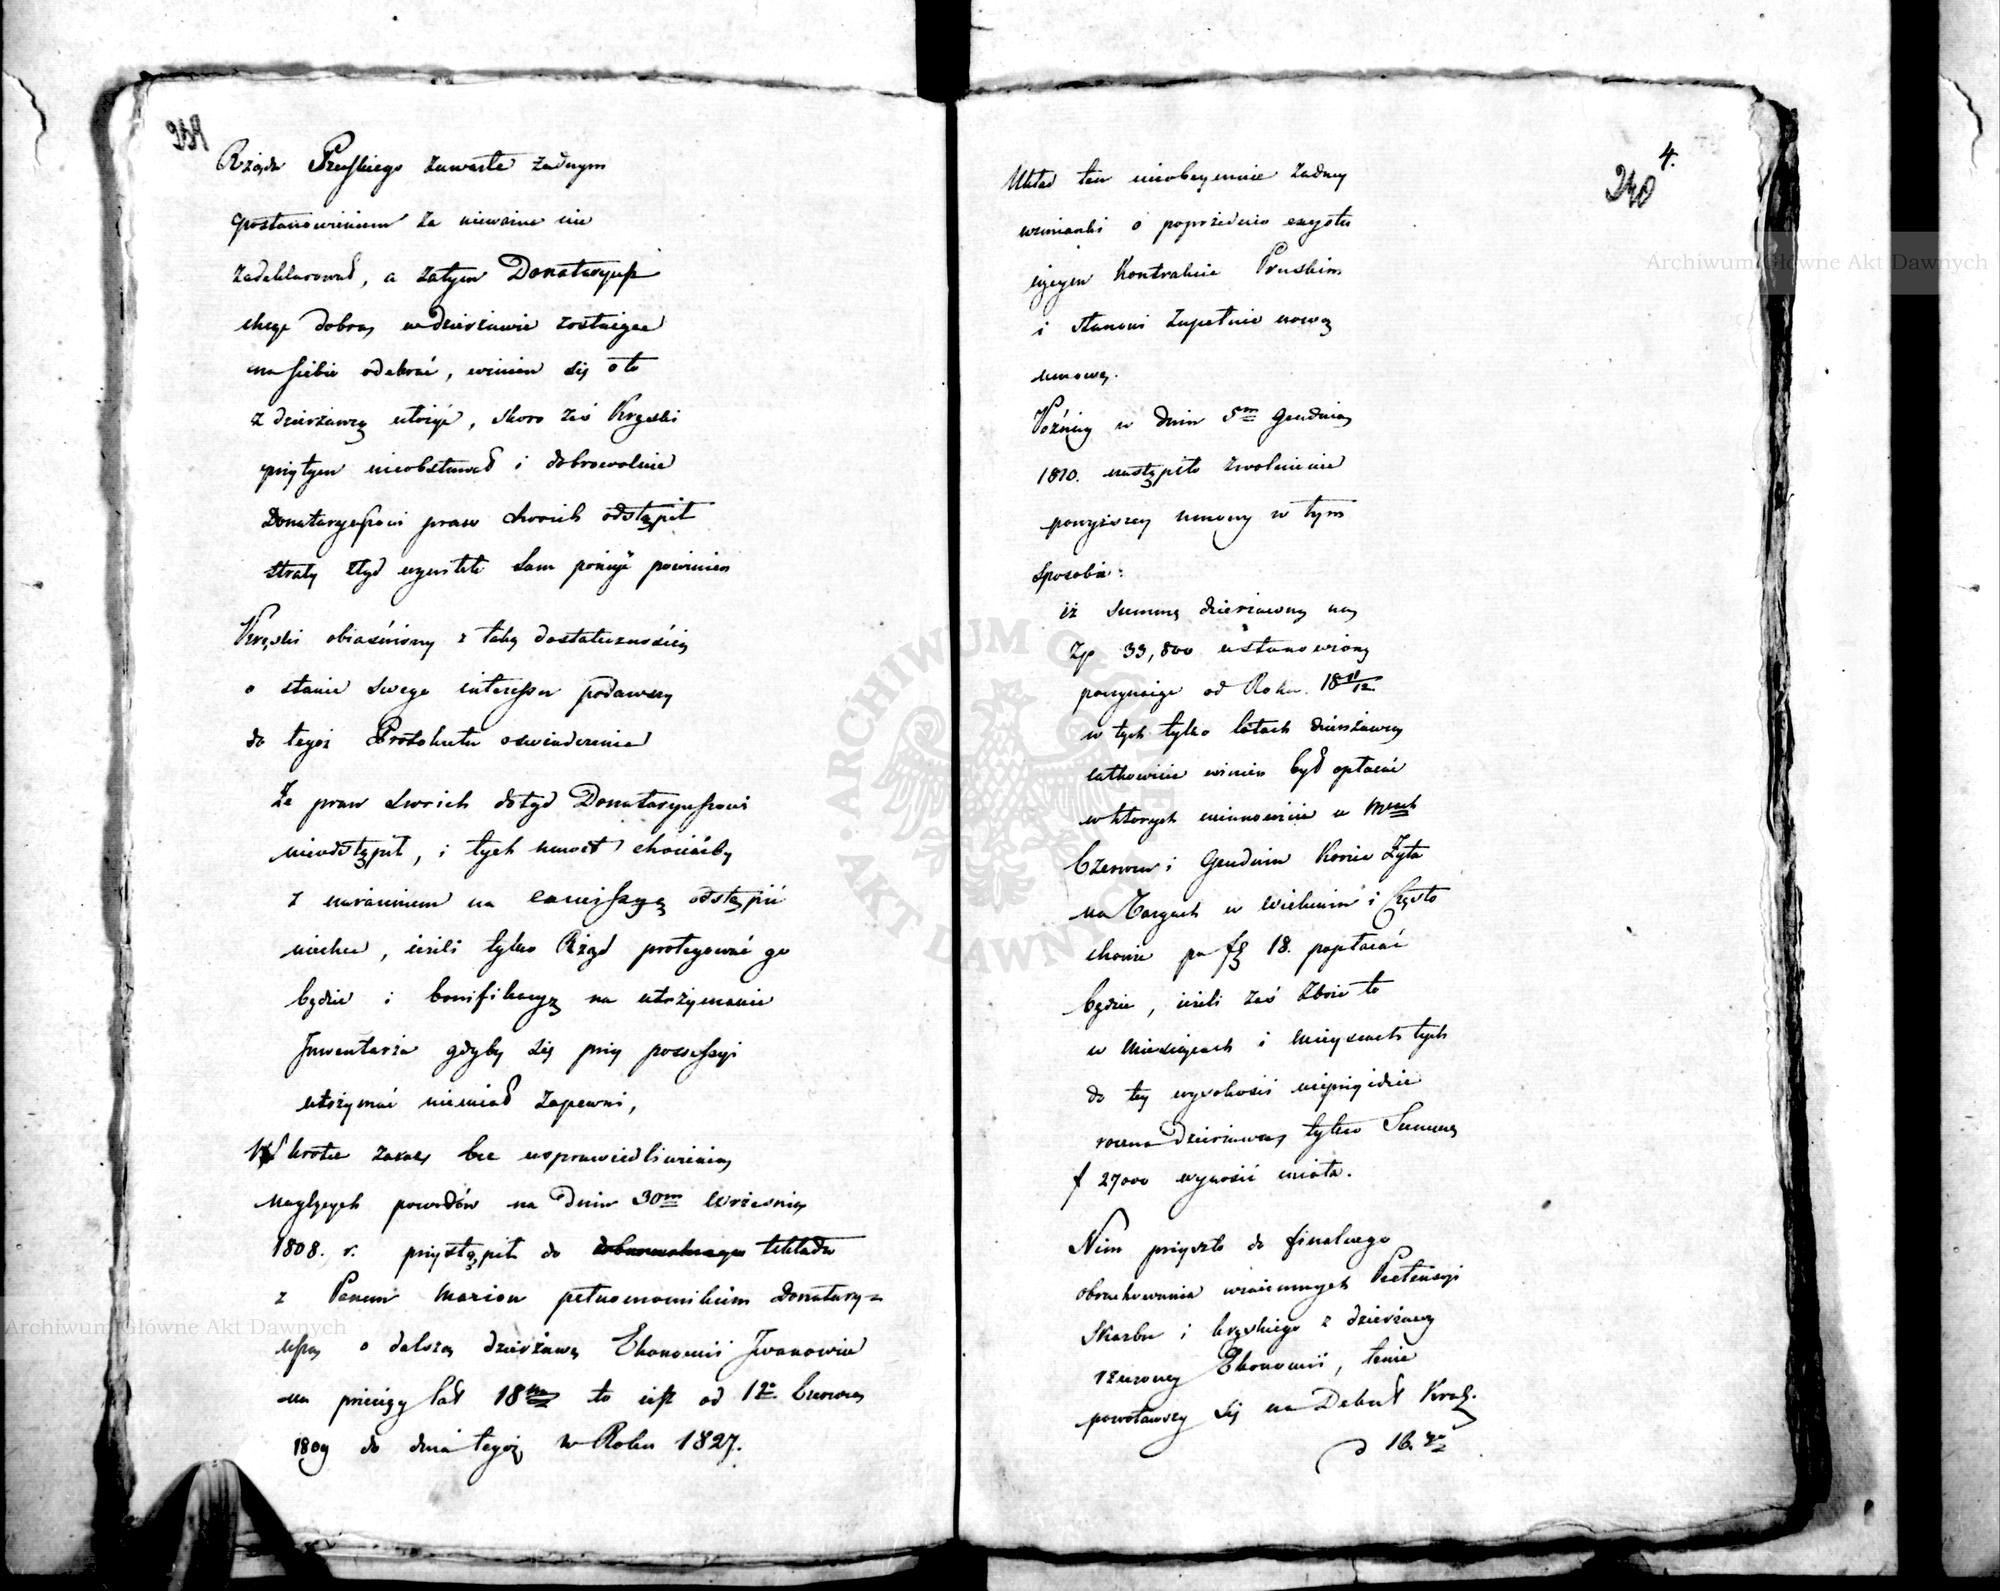 Rządu Pruskiego zawarte żadnym
postanowieniem za nieważne nie
zadeklarował, a zatym Donataryusz
chcąc dobra w dzierżawie zostaiące
na siebie odebrać, winien się o to
z dzierżawcą ułożyć, skoro zaś Kręski
przytym nieobstawał i dobrowolnie
Donataryuszowi praw swoich odstąpił
straty ztąd wynikłe sam ponieść powinien
Kręski obiaśniony z taką dostatecznością
o stanie swego interessu podawszy
do tegoż Protokułu oswiadczenie
Że praw swoich dotąd Donataryuszowi
nieodstąpił, i tych nawet chociażby
z narażeniem na exmissyą odstąpić
niechce, ieżeli tylko Rząd protegować go
będzie i bonifikacyą na utrzymanie
Inwentarza gdyby się przy possessyi
utrzymać niemiał zapewni,
W krotce zaraz bez usprawiedliwienia
naglących powodów na dniu 30m Września
1808. r. przystąpił do Układu
z Panem Marion pełnomocnikiem Donatary=
usza o dalszą dzierżawę Ekonomii Iwanowice
na przeciąg lat 18tu to iest od 1go Czerwca
1809 do dnia tegoż w Roku 1827.
4.
240
Układ ten nieobeymuie żadney
wzmianki o poprzednio exystu
iącym Kontrakcie Pruskim
i stanowi zupełnie nową
umowę.
Późniey w dniu 5m Grudnia
1810. nastąpiło zwolnienie
powyższey umowy w tym
sposobie:
iż summę dzierżawną na
Zp 33,800 ustanowioną
począwszy od Roku 18 11/12
w tych tylko latach dzierżawca
całkowicie winien był opłacać
w których mianowicie w Mcach
Czerwcu i Grudniu Korzec Żyta
na Targach w Wieluniu i Często
chowie po fl 18. popłacać
będzie, ieżeli zaś Zboże to
w Miesiącach i Mieyscach tych
do tey wysokości nieprzyidzie
roczna Dzierżawa tylko Summę
f 27000 wynosić miała.
Nim przyszło do finalnego
obrachowania wzaiemnych Pretensyi
Skarbu i Kręskiego z dzierżawy
rzeczoney Ekonomii, tenże
powoławszy się na Dekret Król.
d 16. go